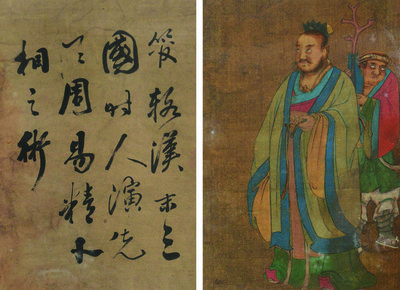 管輅漢末三
國時人演先
天周易精卜
相之術